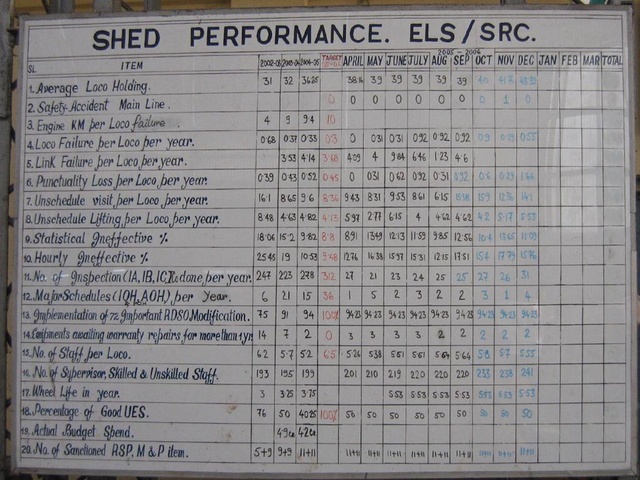 SHED PERFORMANCE. ELS/SRC.
2005-2006
SL. ITEM 2002-03 2003-04 2004-05 TARGET APRIL MAY JUNE JULY AUG SEP OCT NOV DEC JAN FEB MAR TOTAL
1. Average Loco Holding. 31 32 36.25 38.14 39 39 39 39 39 40
2. Safety-Accident Main Line. 0 0 0 0 0 0 0 0 1 0
3. Engine KM per Loco failure. 4 9 9.4 10
4. Loco Failure per Loco per year. 0.68 0.37 0.33 0.3 0 0.31 0.31 0.92 0.92 0.92 0.9 0.29 0.55
5. Link Failure per Loco per year. 3.53 4.14 3.68 4.09 4 9.84 6.46 1.23 4.6
6. Punctuality Loss per Loco, per year. 0.39 0.43 0.52 0.45 0 0.31 0.62 0.92 0.31 0.92 0.6 0.29
7. Unschedule visit, per Loco, per year. 16.1 8.65 9.6 8.36 9.43 8.31 9.53 8.61 6.15 15.9 12.36 14.1
8. Unschedule Lifting, per Loco, per year. 8.48 4.63 4.82 4.13 5.97 2.77 6.15 4 4.62 4.62 4.2 5.17 5.53
9. Statistical Ineffective % 18.06 15.2 9.82 8.8 8.91 13.49 12.13 11.59 9.85 12.56 10.4 13.65 11.09
10. Hourly Ineffective % 25.45 19 10.53 9.48 12.76 16.38 15.97 15.31 12.15 17.51 15.6 17.79 15.76
11. No. of Inspection (IA, IB, IC) done per year. 247 223 278 312 27 21 23 24 25 25 27 26 31
12. Major Schedules (IOH, AOH) per Year. 6 21 15 36 1 5 2 3 2 2 3 1 4
13. Implementation of 72 Important RDSO, Modification. 75 91 94 100% 94.23 94.23 94.23 94.23 94.23 94.23 94.23 94.23 94.23
14. Equipments awaiting warranty repairs for more than 1 yr 14 7 2 0 3 3 3 3 2 2 2 2 2
15. No. of Staff per Loco. 6.2 5.7 5.2 6.5 5.26 5.38 5.61 5.61 5.64 5.64 5.8 5.7 5.55
16. No. of Supervisor, Skilled & Unskilled Staff. 193 195 199 201 210 219 220 220 220 233 238 241
17. Wheel Life in year. 3 3.25 3.75 5.53 5.53 5.53 5.53 5.53 5.53 5.53
18. Percentage of Good UES. 76 50 40.25 100% 50 50 50 50 50 50 50 50 50
19. Actual Budget Spend. 49cr 42cr
20. No. of Sanctioned RSP, M & P item. 5+9 9+9 11+11 11+11 11+11 11+11 11+11 11+11 11+11 11+11 11+11 11+11